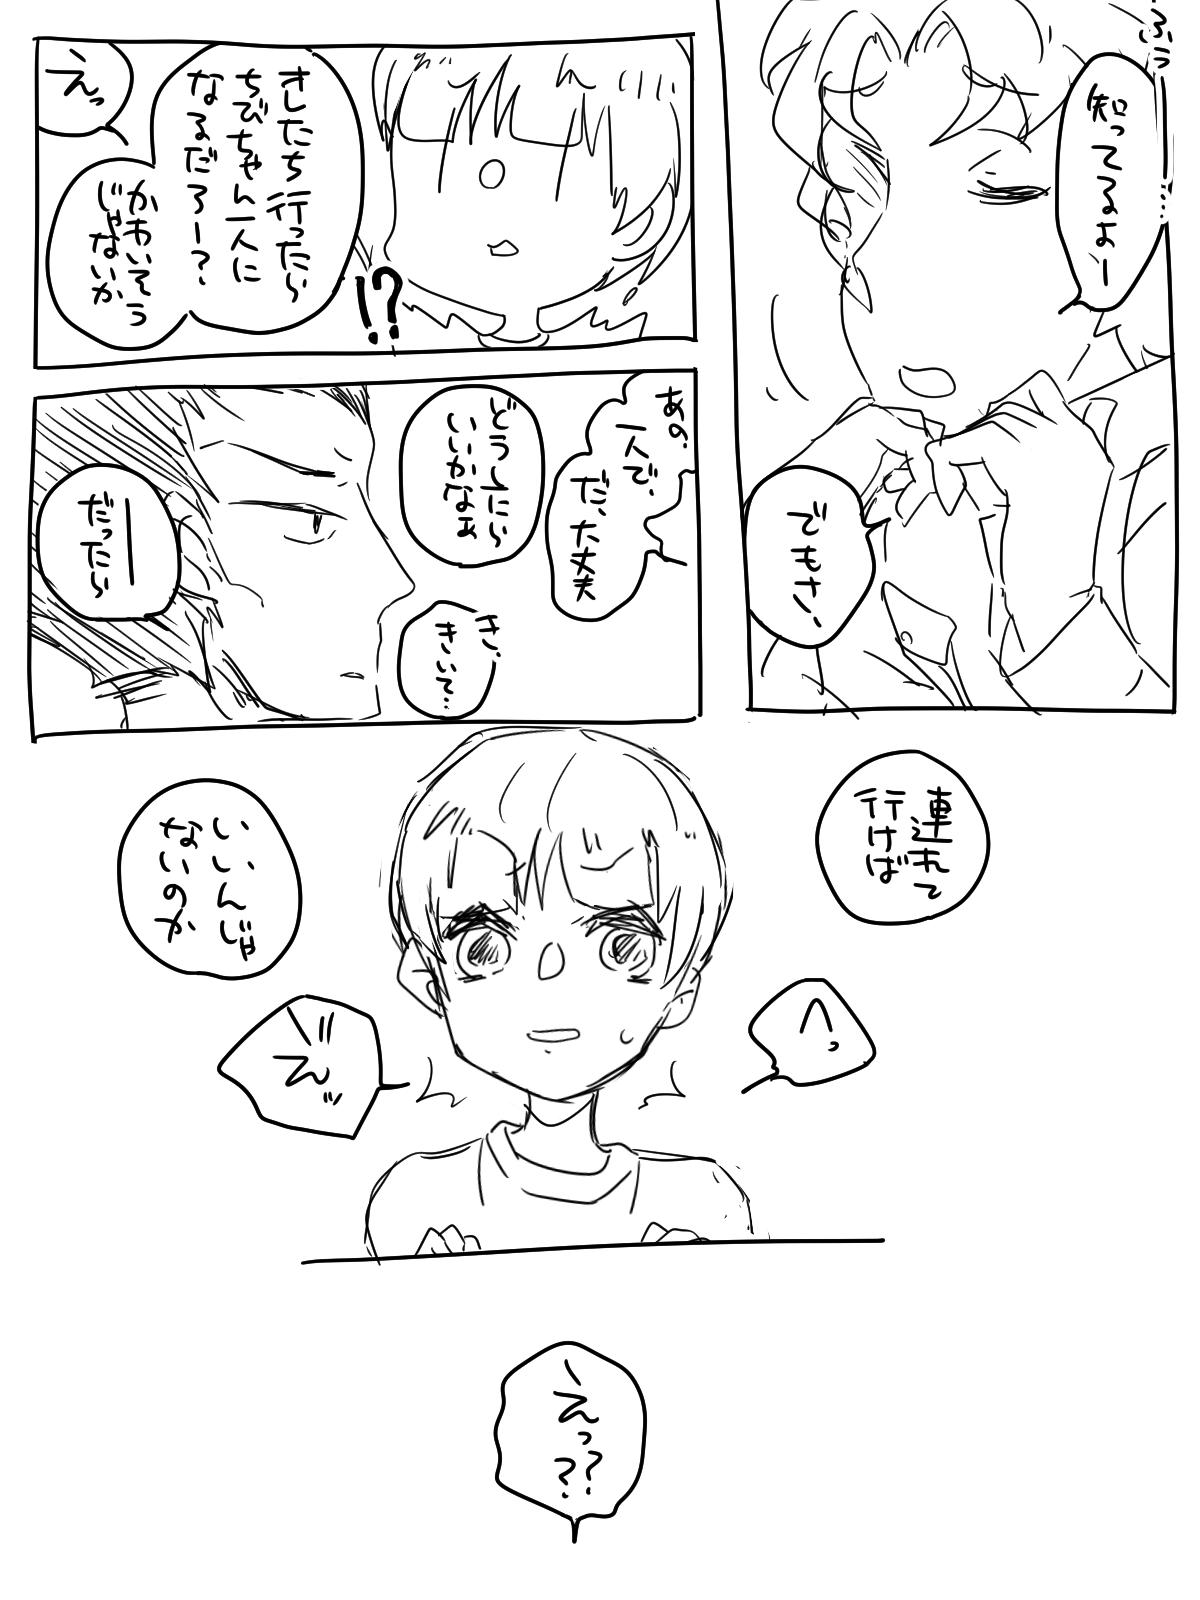 ふぅ…
知ってるよー
でもさ、
オレたち行ったら
ちびちゃん一人に
なるだろー?
かわいそう
じゃないか
えっ
!?
あの、
一人で、
だ、大丈夫
どうしたら
いいかなぁ
き、
きいて…
―だったら
連れて
行けば
いいんじゃ
ないのか
へ?
え"ッ
えっ??